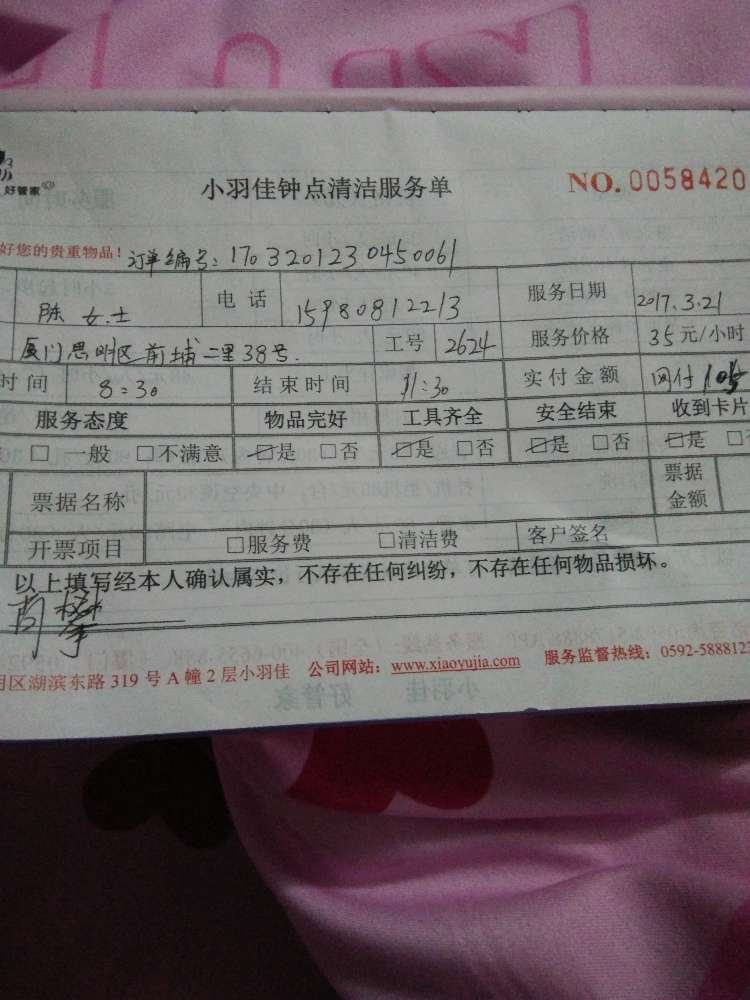 好管家
小羽佳钟点清洁服务单 NO.0058420
好您的贵重物品！订单编号：1703201230450061
陈女士 电话 15980812213 服务日期 2017.3.21
厦门思明区前埔二里38号 工号 2624 服务价格 35元/小时
时间 8:30 结束时间 11:30 实付金额 网付105
服务态度 物品完好 工具齐全 安全结束 收到卡片
□ 一般 □不满意 □是 □否 □是 □否 □是 □否 □是 □
票据名称 票据金额
开票项目 □服务费 □清洁费 客户签名
以上填写经本人确认属实，不存在任何纠纷，不存在任何物品损坏。
明区湖滨东路 319 号 A 幢 2 层小羽佳 公司网站：www.xiaoyujia.com 服务监督热线：0592-5888123